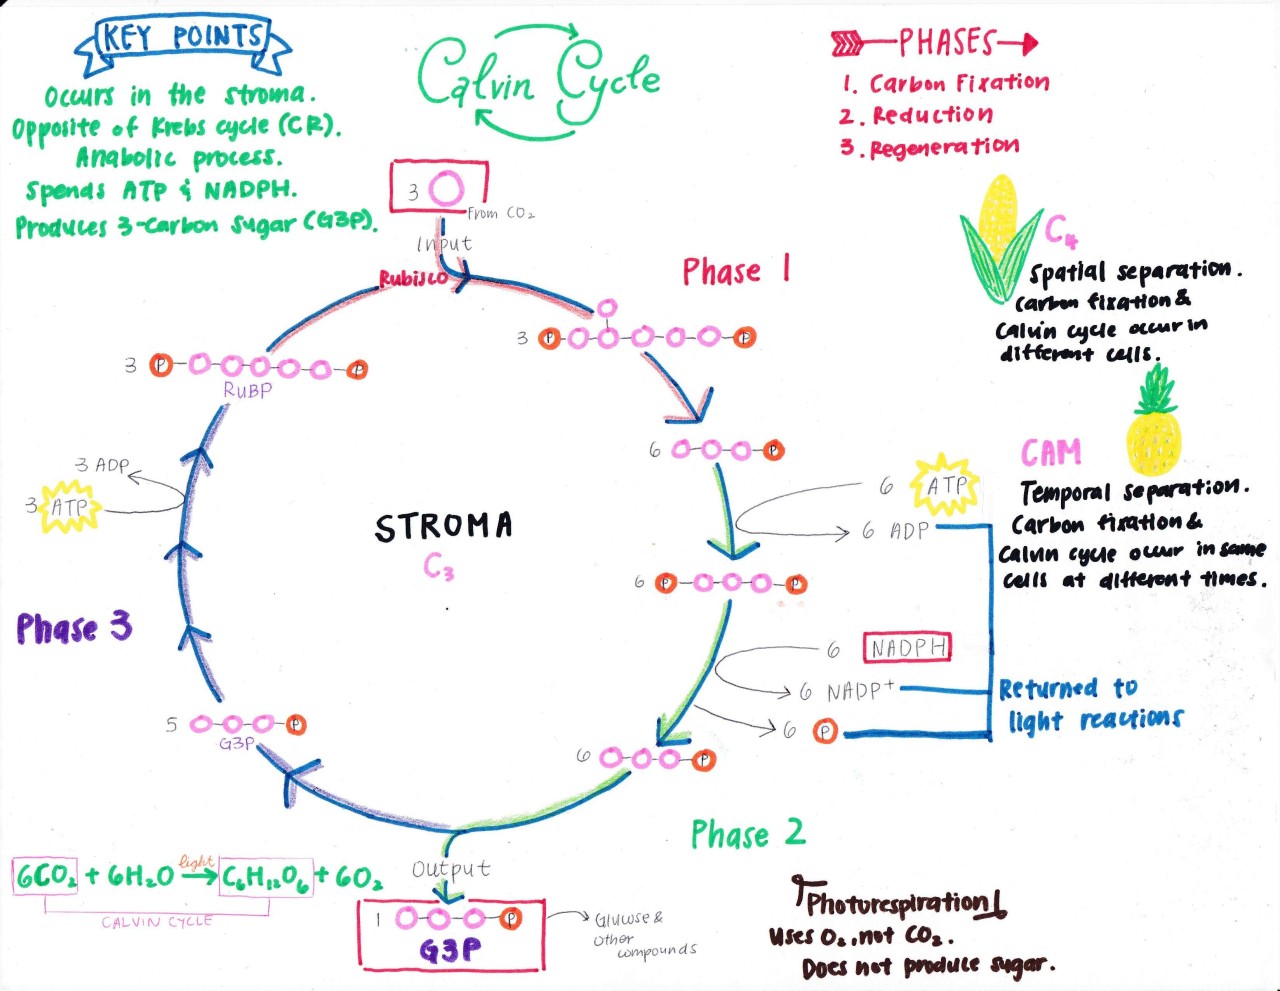 KEY POINTS
Occurs in the stroma.
Opposite of Krebs cycle (CR).
Anabolic process.
Spends ATP & NADPH.
Produces 3-Carbon Sugar (G3P).
Calvin Cycle
PHASES
1. Carbon Fixation
2. Reduction
3. Regeneration
3
From CO₂
Input
Rubisco
Phase 1
3 P P
3 P P
RuBP
6 P
C₄
Spatial separation.
Carbon fixation &
Calvin cycle occur in
different cells.
CAM
Temporal separation.
Carbon fixation &
Calvin cycle occur in same
cells at different times.
3 ADP
3 ATP
STROMA
C₃
6 ATP
6 ADP
6 P P
6 NADPH
6 NADP⁺
6 P
Returned to
light reactions
Phase 3
5 P
G3P
6 P
Phase 2
Output
1 P
G3P
Glucose &
other
compounds
6CO₂ + 6H₂O light → C₆H₁₂O₆ + 6O₂
CALVIN CYCLE
Photorespiration
Uses O₂, not CO₂.
Does not produce sugar.